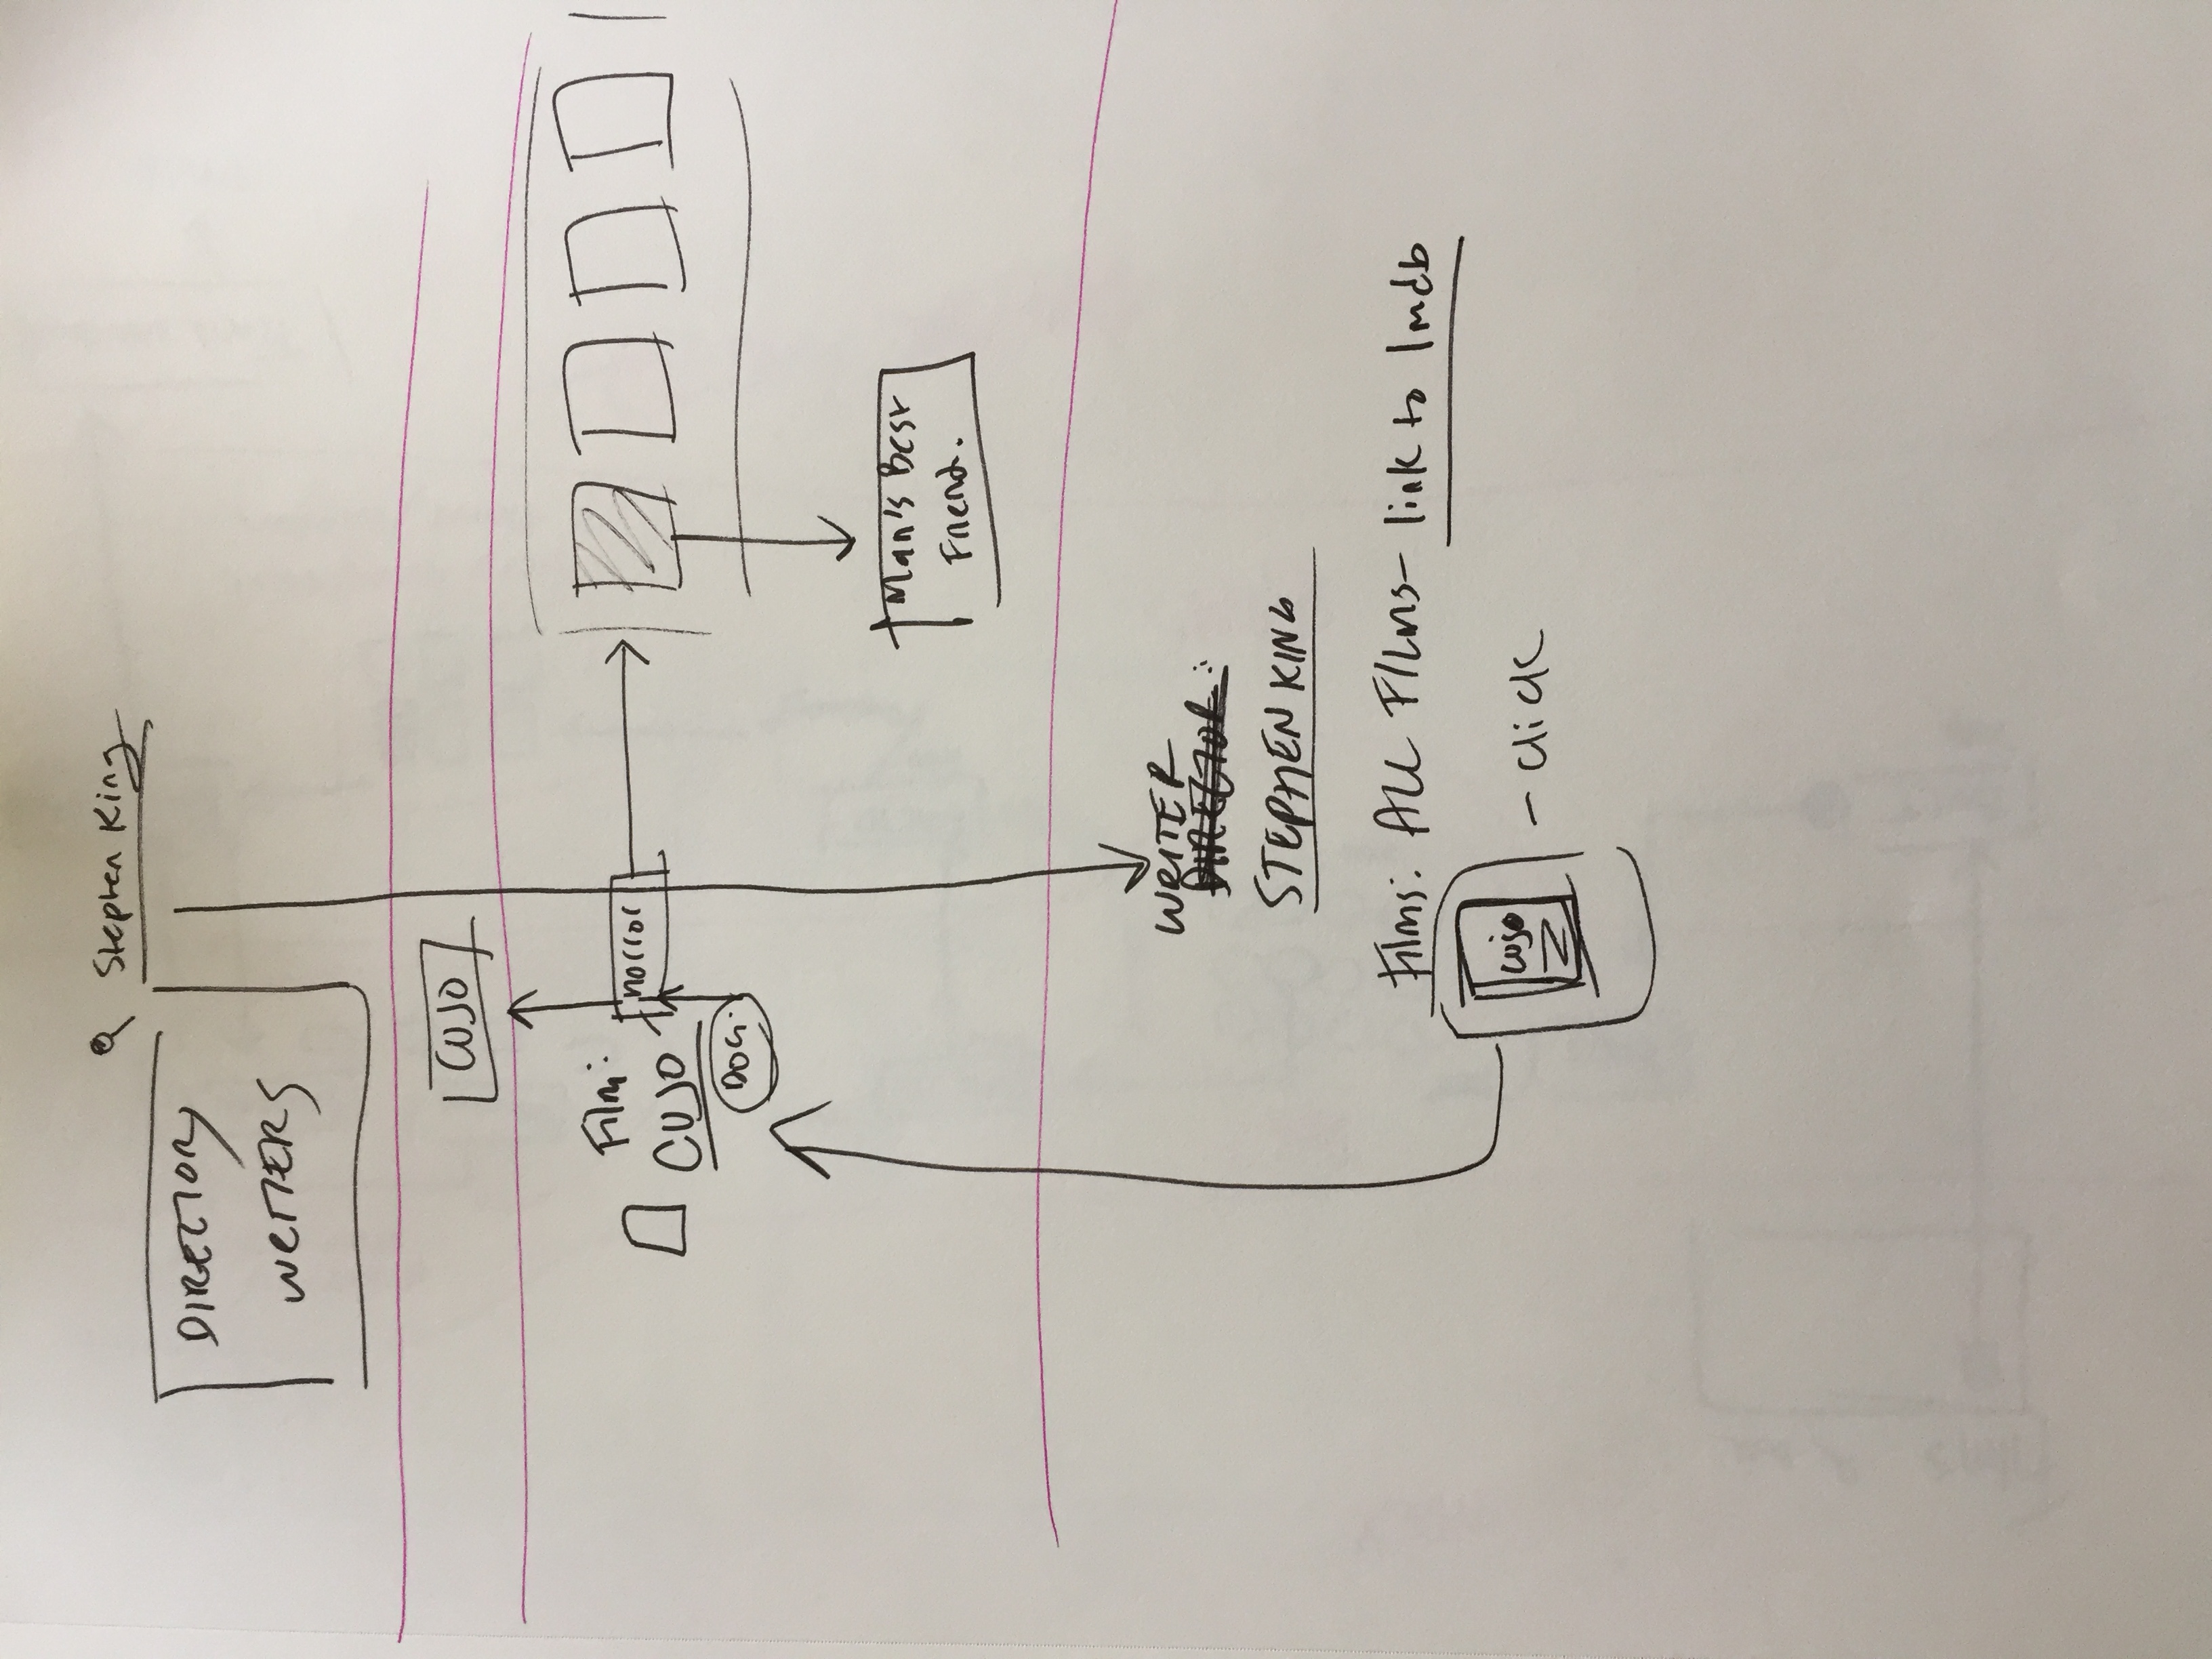 Stephen King
DIRECTORY
WRITERS
CUJO
Film:
CUJO
horror
DOG
Man's Best
Friend.
WRITER
DIRECTOR:
STEPHEN KING
Films: ALL FILMS- link to Imdb
cujo
- click